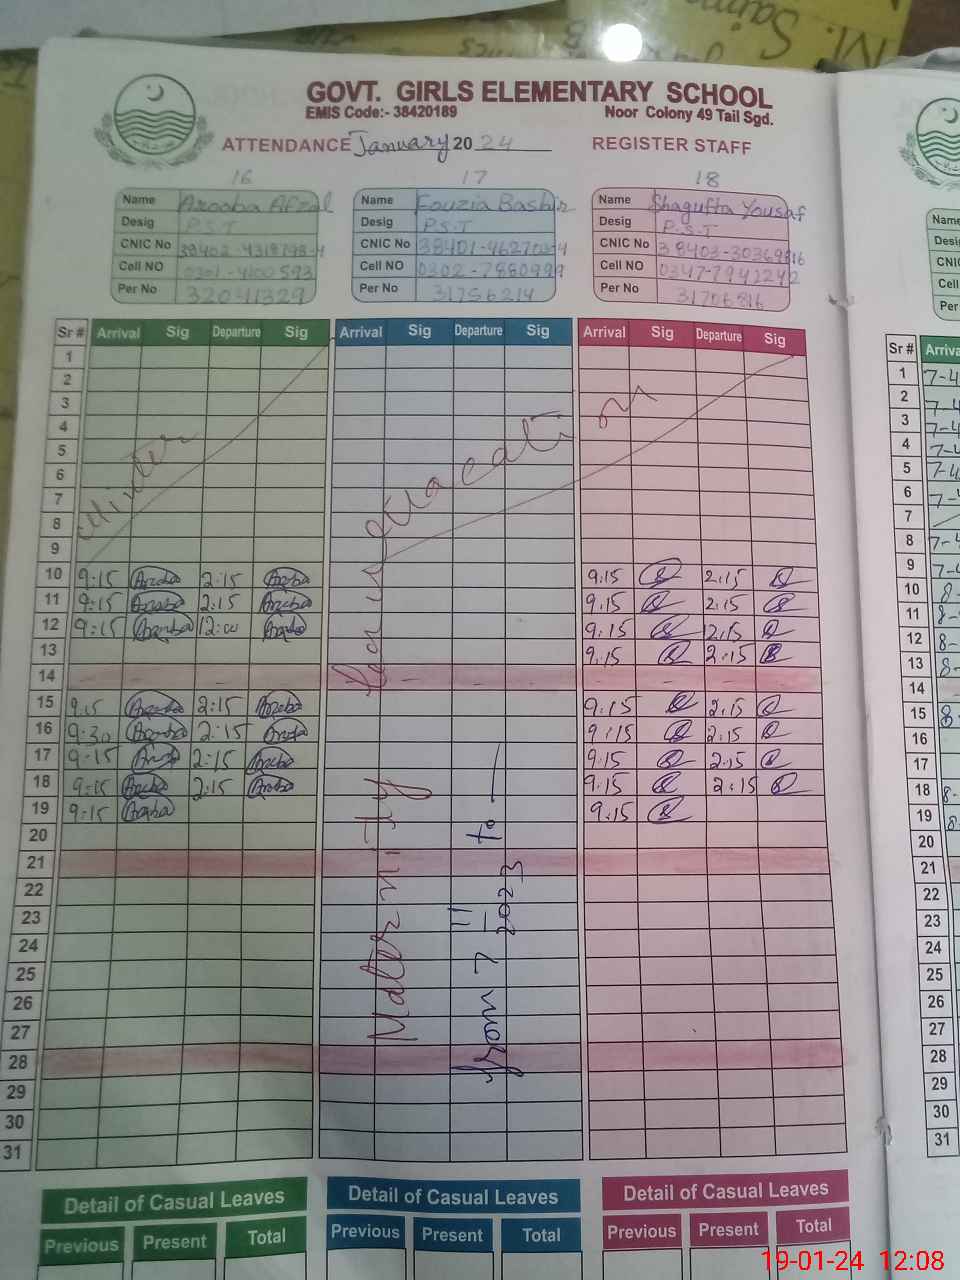 M. Saima
GOVT. GIRLS ELEMENTARY SCHOOL
EMIS Code:- 38420189 Noor Colony 49 Tail Sgd.
ATTENDANCE January 20 24 REGISTER STAFF
16 17 18
Name Arooba Afzal Name Fouzia Bashir Name Shagufta Yousaf
Desig P.S.T Desig P.S.T Desig P.S.T
CNIC No CNIC No CNIC No
Cell NO Cell NO 0302-7880999 Cell NO 0347-7942242
Per No 32041329 Per No 31756214 Per No 31706816
Sr # Arrival Sig Departure Sig Arrival Sig Departure Sig Arrival Sig Departure Sig
1
2
3
4
5
6
7
8
9
Winter Vacation
10 9:15 Arooba 2:15 Arooba 9.15 2:15
11 9:15 Arooba 2:15 Arooba 9.15 2:15
12 9:15 Arooba 12:00 Arooba 9.15 12.15
13 9.15 2:15
14
15 9.15 Arooba 2:15 Arooba 9.15 2.15
16 9:30 Arooba 2:15 Arooba 9:15 2:15
17 9:15 Arooba 2:15 Arooba 9.15 2.15
18 9:15 Arooba 2:15 Arooba 9.15 2:15
19 9:15 Arooba 9:15
20
21
22
23
24
25
26
27
28
29
30
31
Maternity leave
from 7 11 2023 to
Detail of Casual Leaves Detail of Casual Leaves Detail of Casual Leaves
Previous Present Total Previous Present Total Previous Present Total
Name
Desig
CNIC
Cell
Per
Sr # Arriva
1 7-4
2 7-4
3 7-4
4 7-4
5 7-4
6 7-
7
8 7-4
9 7-4
10 8-
11 8-
12 8-
13 8-
14
15 8-
16
17
18 8-
19 8-
20
21
22
23
24
25
26
27
28
29
30
31
19-01-24 12:08